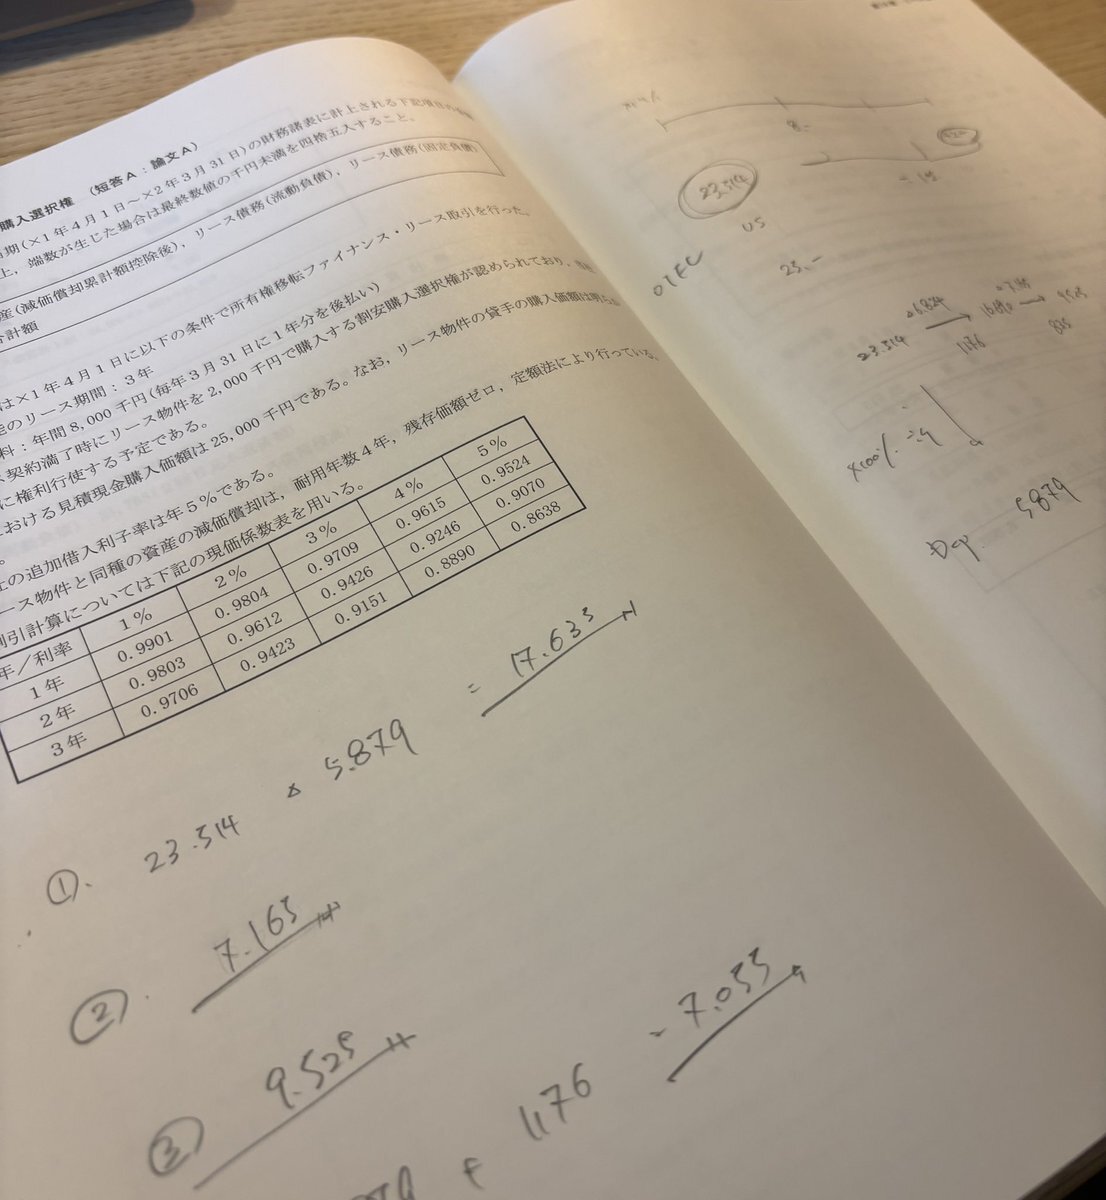 購入選択権 (短答A:論文A)
期(×1年4月1日~×2年3月31日)の財務諸表に計上される下記項目の
上,端数が生じた場合は最終数値の千円未満を四捨五入すること。
産(減価償却累計額控除後),リース債務(流動負債),リース債務(固定負債)
合計額
は×1年4月1日に以下の条件で所有権移転ファイナンス・リース取引を行った。
のリース期間:3年
料:年間8,000千円(毎年3月31日に1年分を後払い)
契約満了時にリース物件を2,000千円で購入する割安購入選択権が認められており,
に権利行使する予定である。
おける見積現金購入価額は25,000千円である。なお,リース物件の貸手の購入価額は明らか
の追加借入利子率は年5%である。
ース物件と同種の資産の減価償却は,耐用年数4年,残存価額ゼロ,定額法により行っている。
割引計算については下記の現価係数表を用いる。
年/利率 1% 2% 3% 4% 5%
1年 0.9901 0.9804 0.9709 0.9615 0.9524
2年 0.9803 0.9612 0.9426 0.9246 0.9070
3年 0.9706 0.9423 0.9151 0.8890 0.8638
①. 23.514 × 5.879 = 17.635
②. 7.165
③ 9.525
+ 1,176 = 7.055
8
23,514
23.514
1176
×100% ÷4
Dep. 5879